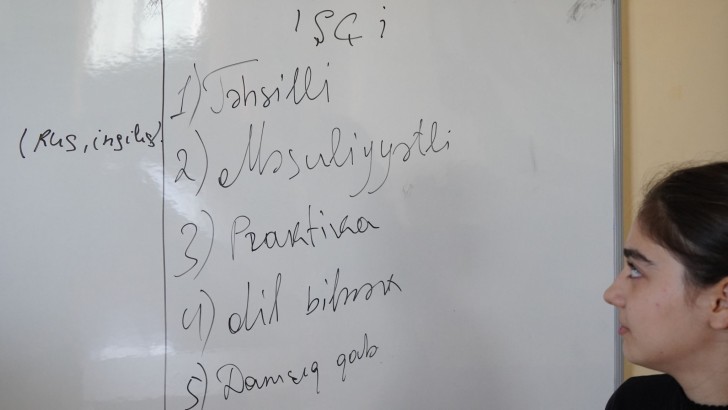 İŞÇİ
1) Təhsilli
(Rus, ingilis)
2) Məsuliyyətli
3) Praktika
4) dil bilmək
5) Danışıq qab